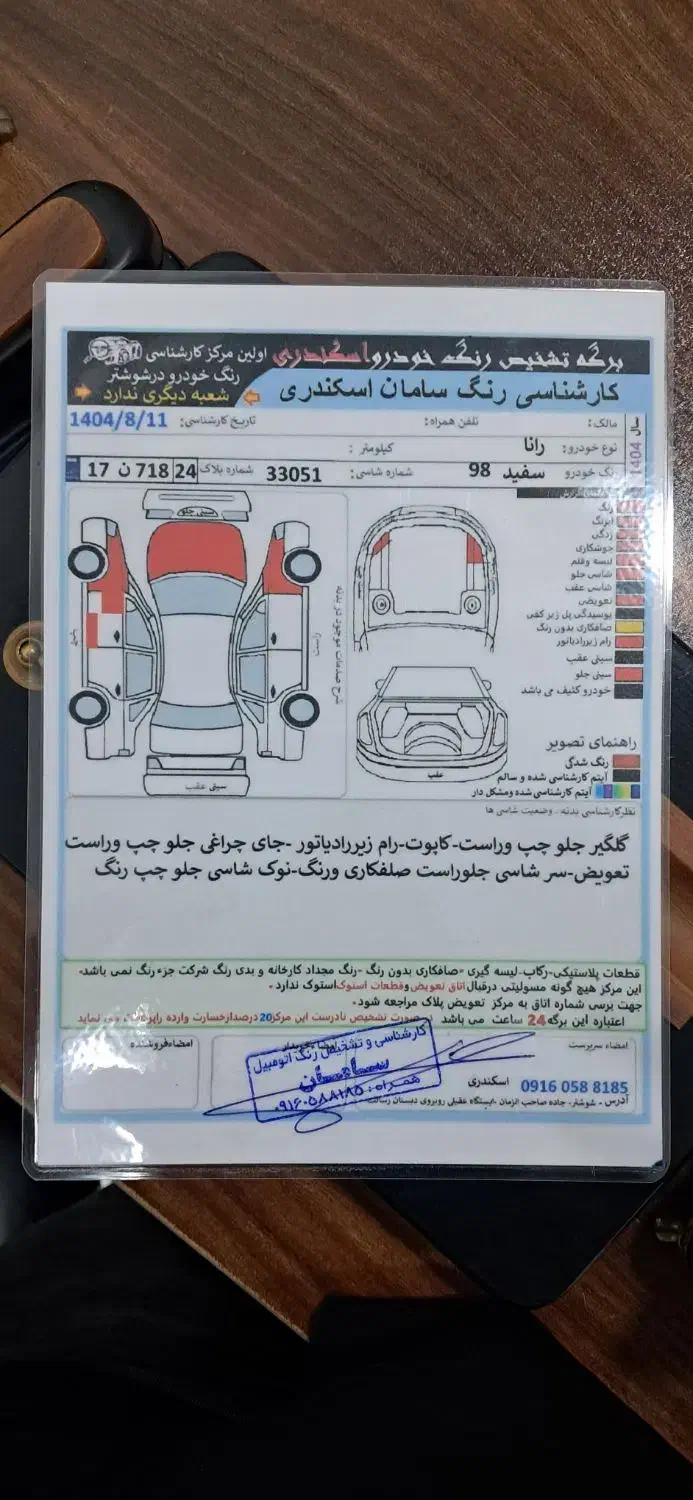 برگه تشخیص رنگ خودرو اسکندری اولین مرکز کارشناسی
رنگ خودرو درشوشتر
کارشناسی رنگ سامان اسکندری
شعبه دیگری ندارد
مالک:
تلفن همراه:
تاریخ کارشناسی: 1404/8/11
سال 1404
نوع خودرو: رانا
کیلومتر :
رنگ خودرو سفید 98
شماره شاسی: 33051
شماره پلاک 24 718 ن 17
سینی جلو
چپ
راست
شرح صدمات موجود در بدنه
سینی عقب
عقب
رنگ
آبرنگ
زدگی
جوشکاری
لیسه وقلم
شاسی جلو
شاسی عقب
تعویضی
پوسیدگی پل زیر کفی
صافکاری بدون رنگ
رام زیررادیاتور
سینی عقب
سینی جلو
خودرو کثیف می باشد
راهنمای تصویر
رنگ شدگی
آیتم کارشناسی شده و سالم
آیتم کارشناسی شده ومشکل دار
نظرکارشناسی بدنه . وضعیت شاسی ها
گلگیر جلو چپ وراست-کاپوت-رام زیررادیاتور -جای چراغی جلو چپ وراست
تعویض-سر شاسی جلوراست صلفکاری ورنگ-نوک شاسی جلو چپ رنگ
قطعات پلاستیکی-رکاب-لیسه گیری -صافکاری بدون رنگ -رنگ مجداد کارخانه و بدی رنگ شرکت جزءرنگ نمی باشد-
این مرکز هیچ گونه مسولیتی درقبال اتاق تعویض وقطعات استوک استوک ندارد -
جهت برسی شماره اتاق به مرکز تعویض پلاک مراجعه شود-
اعتباره این برگه 24 ساعت می باشد صورت تشخیص نادرست این مرکز20درصدازخسارت وارده را می نماید
امضاء سرپرست
امضاءخریدار
امضاءفروشنده
کارشناسی و تشخیص رنگ اتومبیل
سامان
همراه: ۰۹۱۶۰۵۸۸۱۸۵
اسکندری 0916 058 8185
آدرس - شوشتر- جاده صاحب الزمان -ایستگاه عقیلی روبروی دبستان رسالت